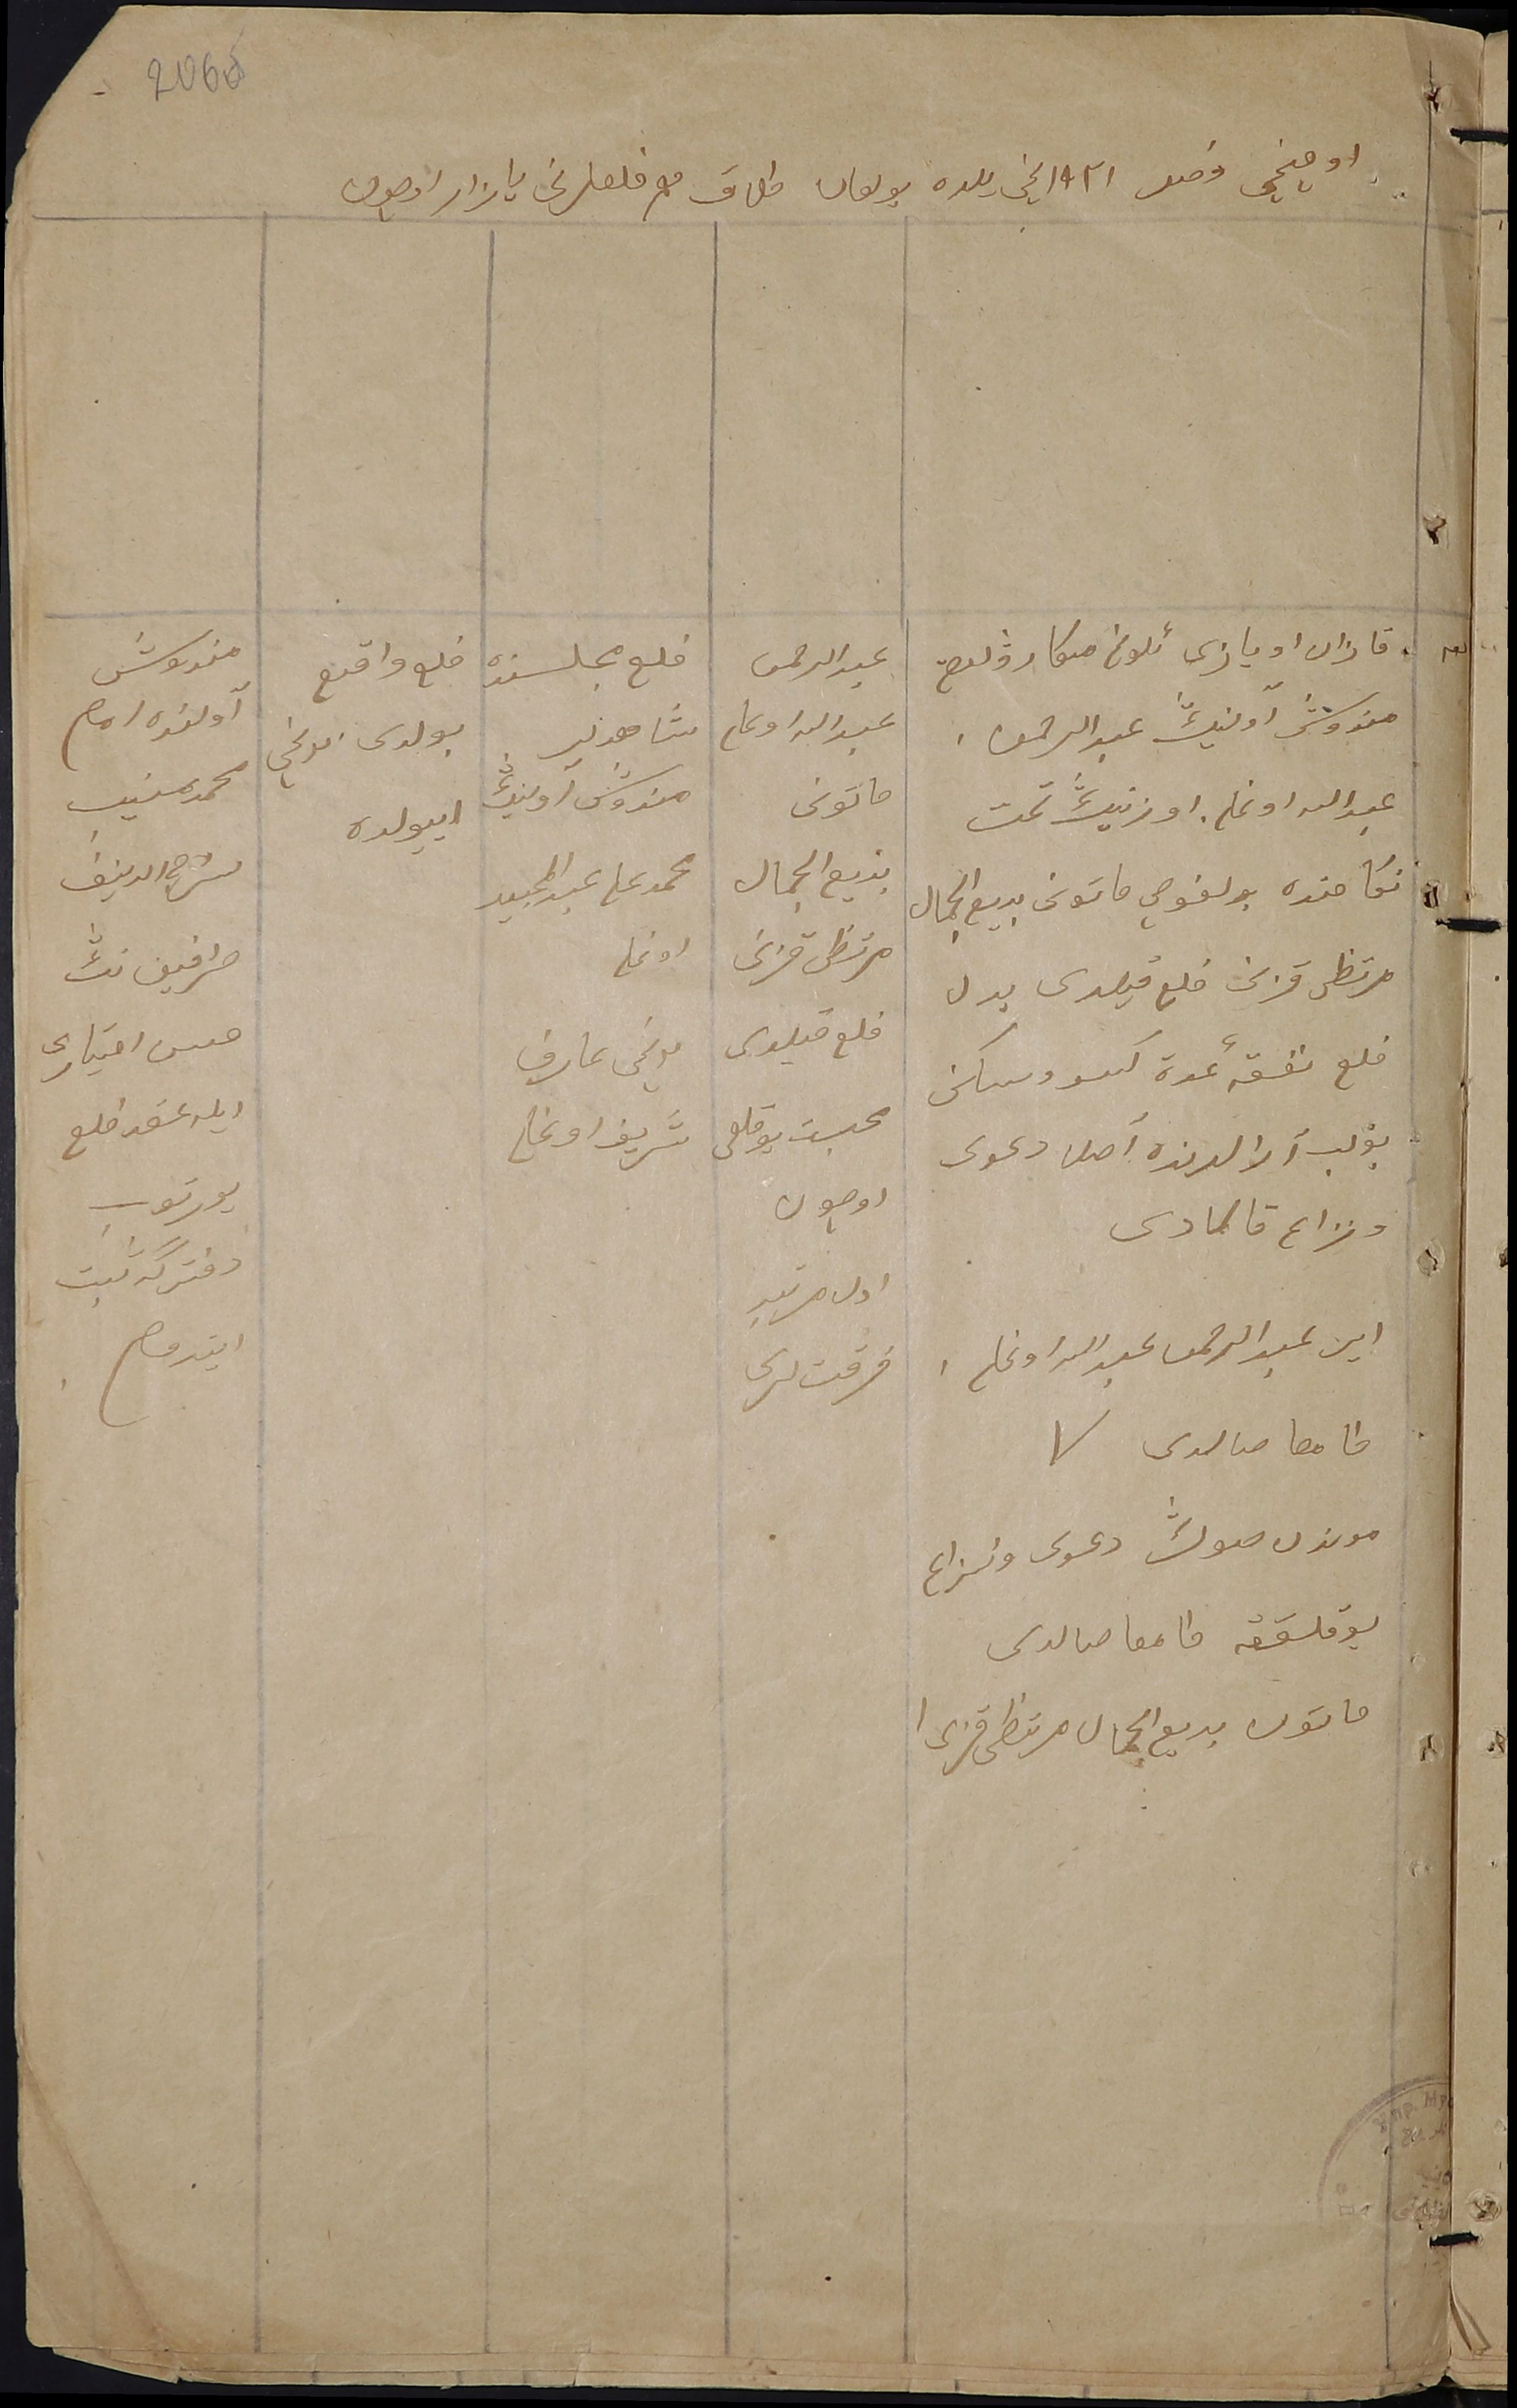 2065
اوچنچی فصل ۱۹۲۱ نچی یلده بولغان طلاق هم خلعلرنی یازار اوچون
قازان اویازی ئلوغ منکار ۋلوص
مندوش آولینڭ عبدالرحمن
عبدالله اوغلی اوزینڭ تحت
نکاحنده بولغوچی خاتونی بدیع الجمال
مرتظی قزنی خلع قیلدی بدل
خلع نفقهٔ عدة کسو و سکنی
بولب آرالرنده اصلا دعوی
و نزاع قالمادی
ایر عبدالرحمن عبدالله اوغلی
طامغا صالدی
موندن صوڭ دعوی و نزاع
یوقلققه طامغا صالدی
خاتون بدیع الجمال مرتظی قزی
عبدالرحمن
عبدالله اوغلی
خاتونی
بدیع الجمال
مرتظی قزنی
خلع قیلدی
محبت یوقلقی
اوچون
اول مرتبه
فرقت لری
خلع مجلسنده
شاهدلر
مندوش آولینڭ
محمدعلی عبدالمجید
اوغلی
عارف
شریف اوغلی
خلع واقع
بولدی
اییولده
مندوش
آولنده امام
محمدمنیب
شرح الدینف
طرفینن نڭ
حسن اختیاری
ایله عقد خلع
یورتوب
دفترگه ثبت
ایتدم